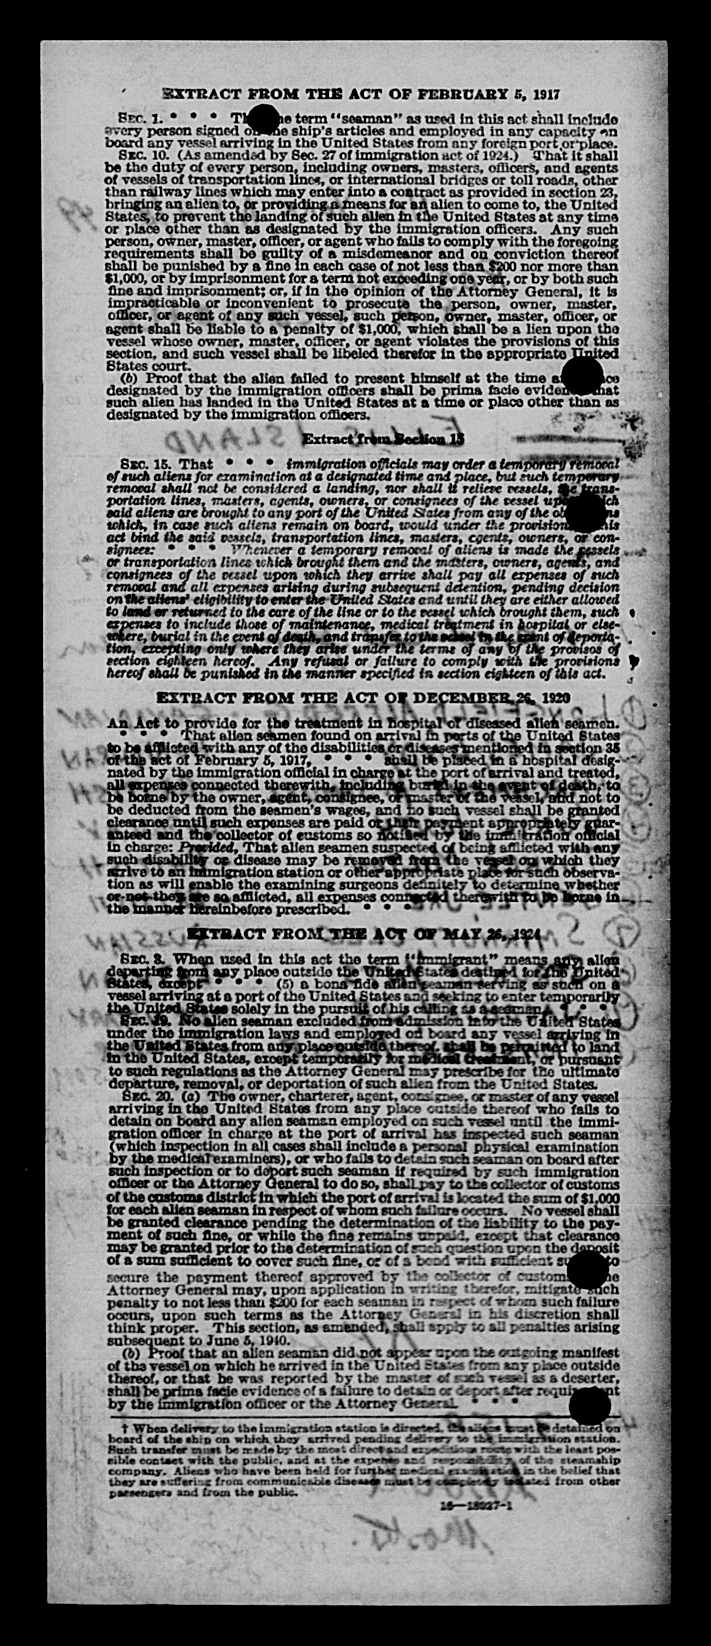 EXTRACT FROM THE ACT OF FEBRUARY 5, 1917
SEC. 1. * * * term "seaman" as used in this act shall include
every person signed on the ship's articles and employed in any capacity on
board any vessel arriving in the United States from any foreign port or place.
SEC. 10. (As amended by Sec. 27 of immigration act of 1924.) That it shall
be the duty of every person, including owners, masters, officers, and agents
of vessels of transportation lines, or international bridges or toll roads, other
than railway lines which may enter into a contract as provided in section 23,
bringing an alien to, or providing a means for an alien to come to, the United
States, to prevent the landing of such alien in the United States at any time
or place other than as designated by the immigration officers. Any such
person, owner, master, officer, or agent who fails to comply with the foregoing
requirements shall be guilty of a misdemeanor and on conviction thereof
shall be punished by a fine in each case of not less than $200 nor more than
$1,000, or by imprisonment for a term not exceeding one year, or by both such
fine and imprisonment; or, if in the opinion of the Attorney General, it is
impracticable or inconvenient to prosecute the person, owner, master,
officer, or agent of any such vessel, such person, owner, master, officer, or
agent shall be liable to a penalty of $1,000, which shall be a lien upon the
vessel whose owner, master, officer, or agent violates the provisions of this
section, and such vessel shall be libeled therefor in the appropriate United
States court.
(b) Proof that the alien failed to present himself at the time
designated by the immigration officers shall be prima facie that
such alien has landed in the United States at a time or place other than as
designated by the immigration officers.
ELLIS ISLAND
Extract from Section 15
SEC. 15. That * * * immigration officials may order a temporary removal
of such aliens for examination at a designated time and place, but such temporary
removal shall not be considered a landing, nor shall it relieve vessels, the trans-
portation lines, masters, agents, owners, or consignees of the vessel
said aliens are brought to any port of the United States from any of the
which, in case such aliens remain on board, would under the
act bind the said vessels, transportation lines, masters, agents, owners, or con-
signees: * * * Whenever a temporary removal of aliens is made the vessels
or transportation lines which brought them and the masters, owners, agents, and
consignees of the vessel upon which they arrive shall pay all expenses of such
removal and all expenses arising during subsequent detention, pending decision
on the aliens' eligibility to enter the United States and until they are either allowed
to land or returned to the care of the line or to the vessel which brought them, such
expenses to include those of maintenance, medical treatment in hospital or else-
where, burial in the event of death, and transfer to the vessel in the event of deporta-
tion, excepting only where they arise under the terms of any of the provisos of
section eighteen hereof. Any refusal or failure to comply with the provisions
hereof shall be punished in the manner specified in section eighteen of this act.
EXTRACT FROM THE ACT OF DECEMBER 26, 1920
An Act to provide for the treatment in hospital of diseased alien seamen.
* * * That alien seamen found on arrival in ports of the United States
to be afflicted with any of the disabilities or diseases mentioned in section 35
of the act of February 5, 1917, * * * shall be placed in a hospital desig-
nated by the immigration official in charge at the port of arrival and treated,
all expenses connected therewith, including burial in the event of death, to
be borne by the owner, agent, consignee, or master of the vessel, and not to
be deducted from the seamen's wages, and no such vessel shall be granted
clearance until such expenses are paid or their payment appropriately guar-
anteed and the collector of customs so notified by the immigration official
in charge: Provided, That alien seamen suspected of being afflicted with any
such disability or disease may be removed from the vessel on which they
arrive to an immigration station or other appropriate place for such observa-
tion as will enable the examining surgeons definitely to determine whether
or not they are so afflicted, all expenses connected therewith to be borne in
the manner hereinbefore prescribed. * * *
EXTRACT FROM THE ACT OF MAY 26, 1924
SEC. 3. When used in this act the term "immigrant" means any alien
departing from any place outside the United States destined for the United
States, except * * * (5) a bona fide alien seaman serving as such on a
vessel arriving at a port of the United States and seeking to enter temporarily
the United States solely in the pursuit of his calling as a seaman.
SEC. 19. No alien seaman excluded from admission into the United States
under the immigration laws and employed on board any vessel arriving in
the United States from any place outside thereof, shall be permitted to land
in the United States, except temporarily for medical treatment, or pursuant
to such regulations as the Attorney General may prescribe for the ultimate
departure, removal, or deportation of such alien from the United States.
SEC. 20. (a) The owner, charterer, agent, consignee, or master of any vessel
arriving in the United States from any place outside thereof who fails to
detain on board any alien seaman employed on such vessel until the immi-
gration officer in charge at the port of arrival has inspected such seaman
(which inspection in all cases shall include a personal physical examination
by the medical examiners), or who fails to detain such seaman on board after
such inspection or to deport such seaman if required by such immigration
officer or the Attorney General to do so, shall pay to the collector of customs
of the customs district in which the port of arrival is located the sum of $1,000
for each alien seaman in respect of whom such failure occurs. No vessel shall
be granted clearance pending the determination of the liability to the pay-
ment of such fine, or while the fine remains unpaid, except that clearance
may be granted prior to the determination of such question upon the deposit
of a sum sufficient to cover such fine, or of a bond with sufficient to
secure the payment thereof approved by the collector of customs
Attorney General may, upon application in writing therefor, mitigate such
penalty to not less than $200 for each seaman in respect of whom such failure
occurs, upon such terms as the Attorney General in his discretion shall
think proper. This section, as amended, shall apply to all penalties arising
subsequent to June 5, 1940.
(b) Proof that an alien seaman did not appear upon the outgoing manifest
of the vessel on which he arrived in the United States from any place outside
thereof, or that he was reported by the master of such vessel as a deserter,
shall be prima facie evidence of a failure to detain or deport after
by the immigration officer or the Attorney General. * * *
† When delivery to the immigration station is directed, the aliens must be detained on
board of the ship on which they arrived pending delivery to the immigration station.
Such transfer must be made by the most direct and expeditious route with the least pos-
sible contact with the public, and at the expense and responsibility of the steamship
company. Aliens who have been held for further medical examination in the belief that
they are suffering from communicable diseases must be completely isolated from other
passengers and from the public.
16—18227-1